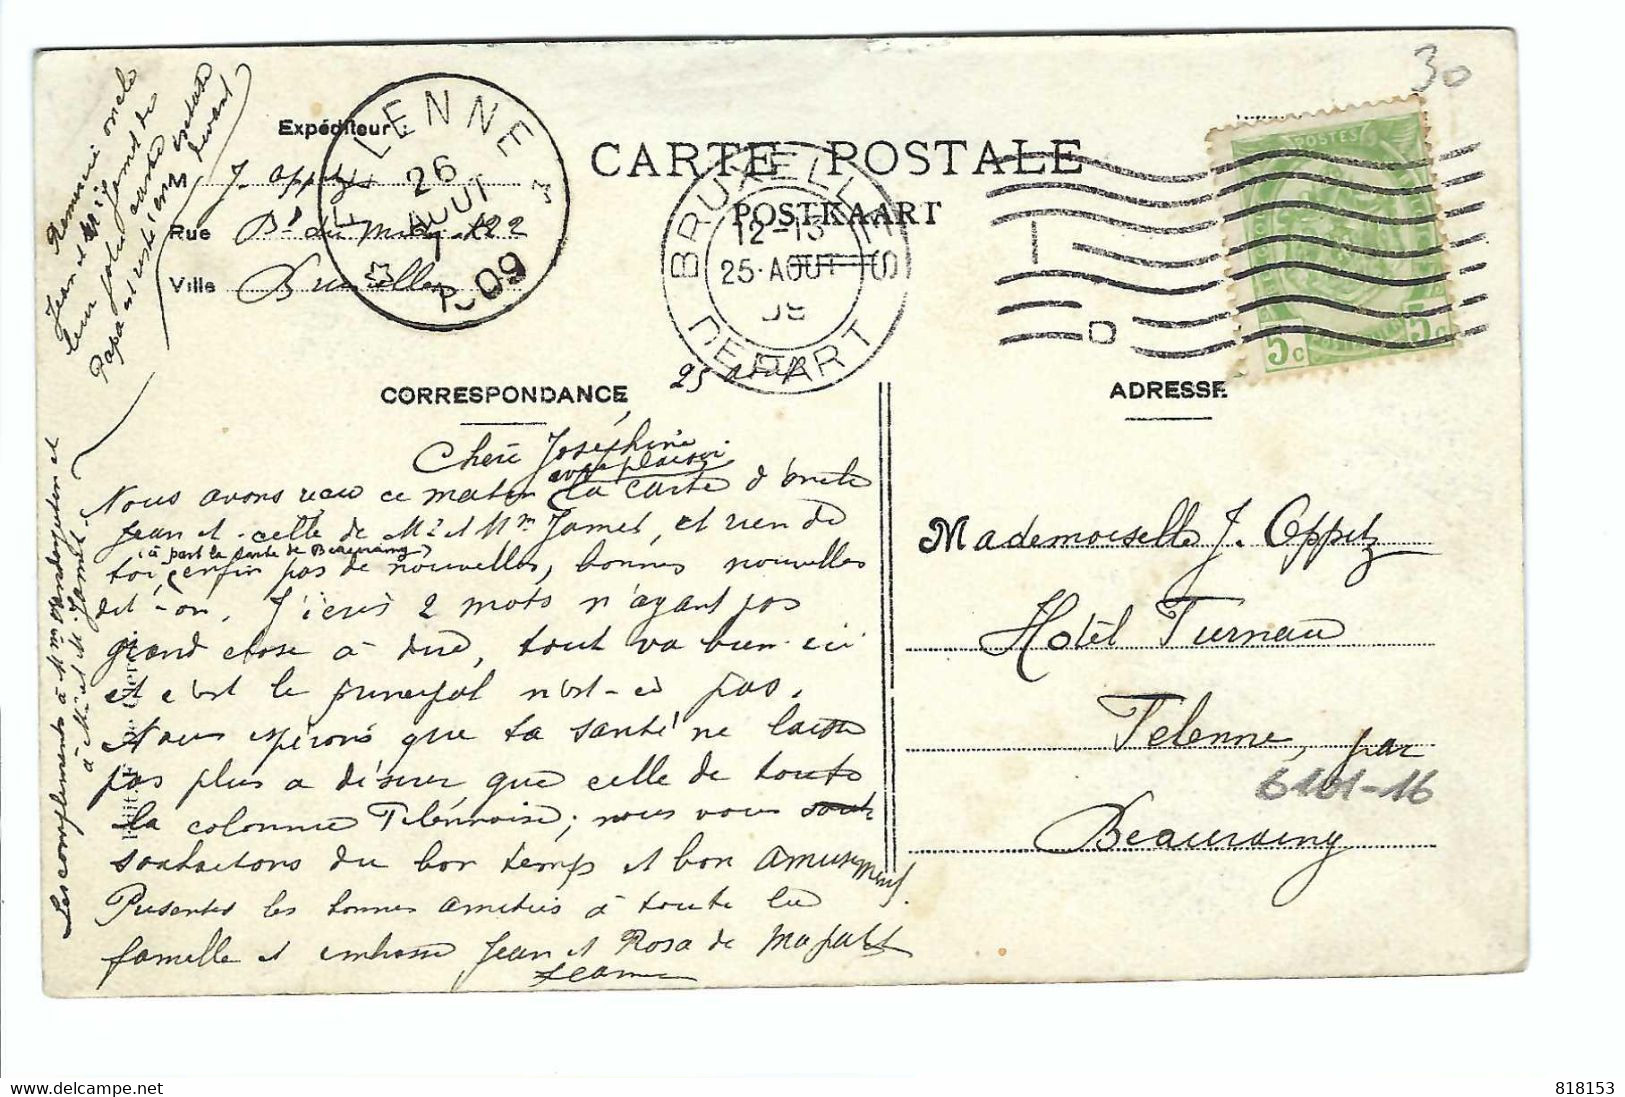 30
Expéditeur:
CARTE POSTALE
POSTKAART
M J. Oppitz
Rue Bd du Midi 122
Ville Bruxelles
FELENNE
26
AOUT
09
BRUXELLES
12-13
25·AOUT
DEPART
POSTES
5c 5c
25 août
CORRESPONDANCE
ADRESSE
Chère Joséphine
avec plaisir
Nous avons reçu ce matin la carte d'oncle
Jean et celle de Mr et Mme Jamet, et rien de
(à part la carte de Beauraing)
toi, enfin pas de nouvelles, bonnes nouvelles
dit-on. J'écris 2 mots n'ayant pas
grand chose à dire, tout va bien ici
et c'est le principal n'est-ce pas.
Nous espérons que ta santé ne laisse
pas plus à désirer que celle de toute
la colonnie Felennoise; nous vous
souhaitons du bon temps et bon amusement.
Présentes les bonnes amitiés à toute la
famille et embrasse Jean et Rosa de ma part
Jeanne
Mademoiselle J. Oppitz
Hôtel Turnau
Felenne, par
6101-16
Beauraing
Remercie oncle
Jean et Mr Jamet de
leur jolie carte
Papa
devant
Les compliments à Mme
à Mr et M. Jamet.
818153